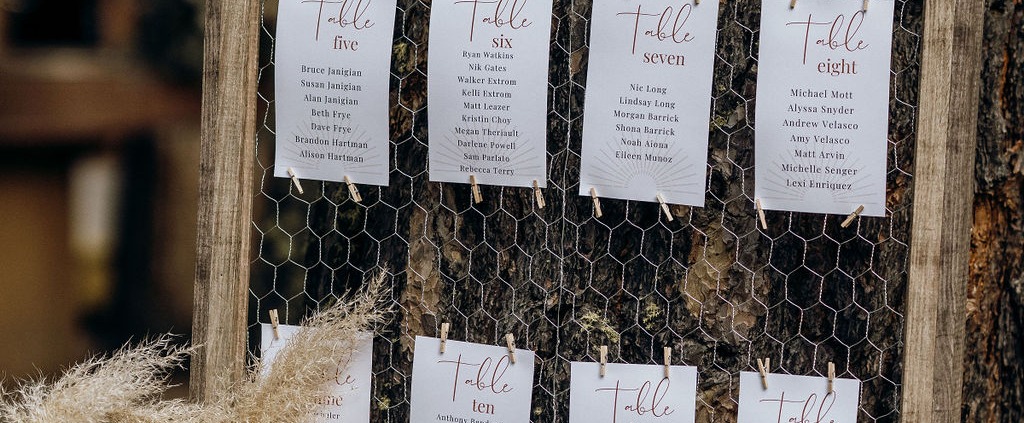 Table
five
Bruce Janigian
Susan Janigian
Alan Janigian
Beth Frye
Dave Frye
Brandon Hartman
Alison Hartman
Table
six
Ryan Watkins
Nik Gates
Walker Extrom
Kelli Extrom
Matt Leazer
Kristin Choy
Megan Theriault
Darlene Powell
Sam Parlato
Rebecca Terry
Table
seven
Nic Long
Lindsay Long
Morgan Barrick
Shona Barrick
Noah Aiona
Eileen Munoz
Table
eight
Michael Mott
Alyssa Snyder
Andrew Velasco
Amy Velasco
Matt Arvin
Michelle Senger
Lexi Enriquez
Table
ten
Anthony
Table
Table